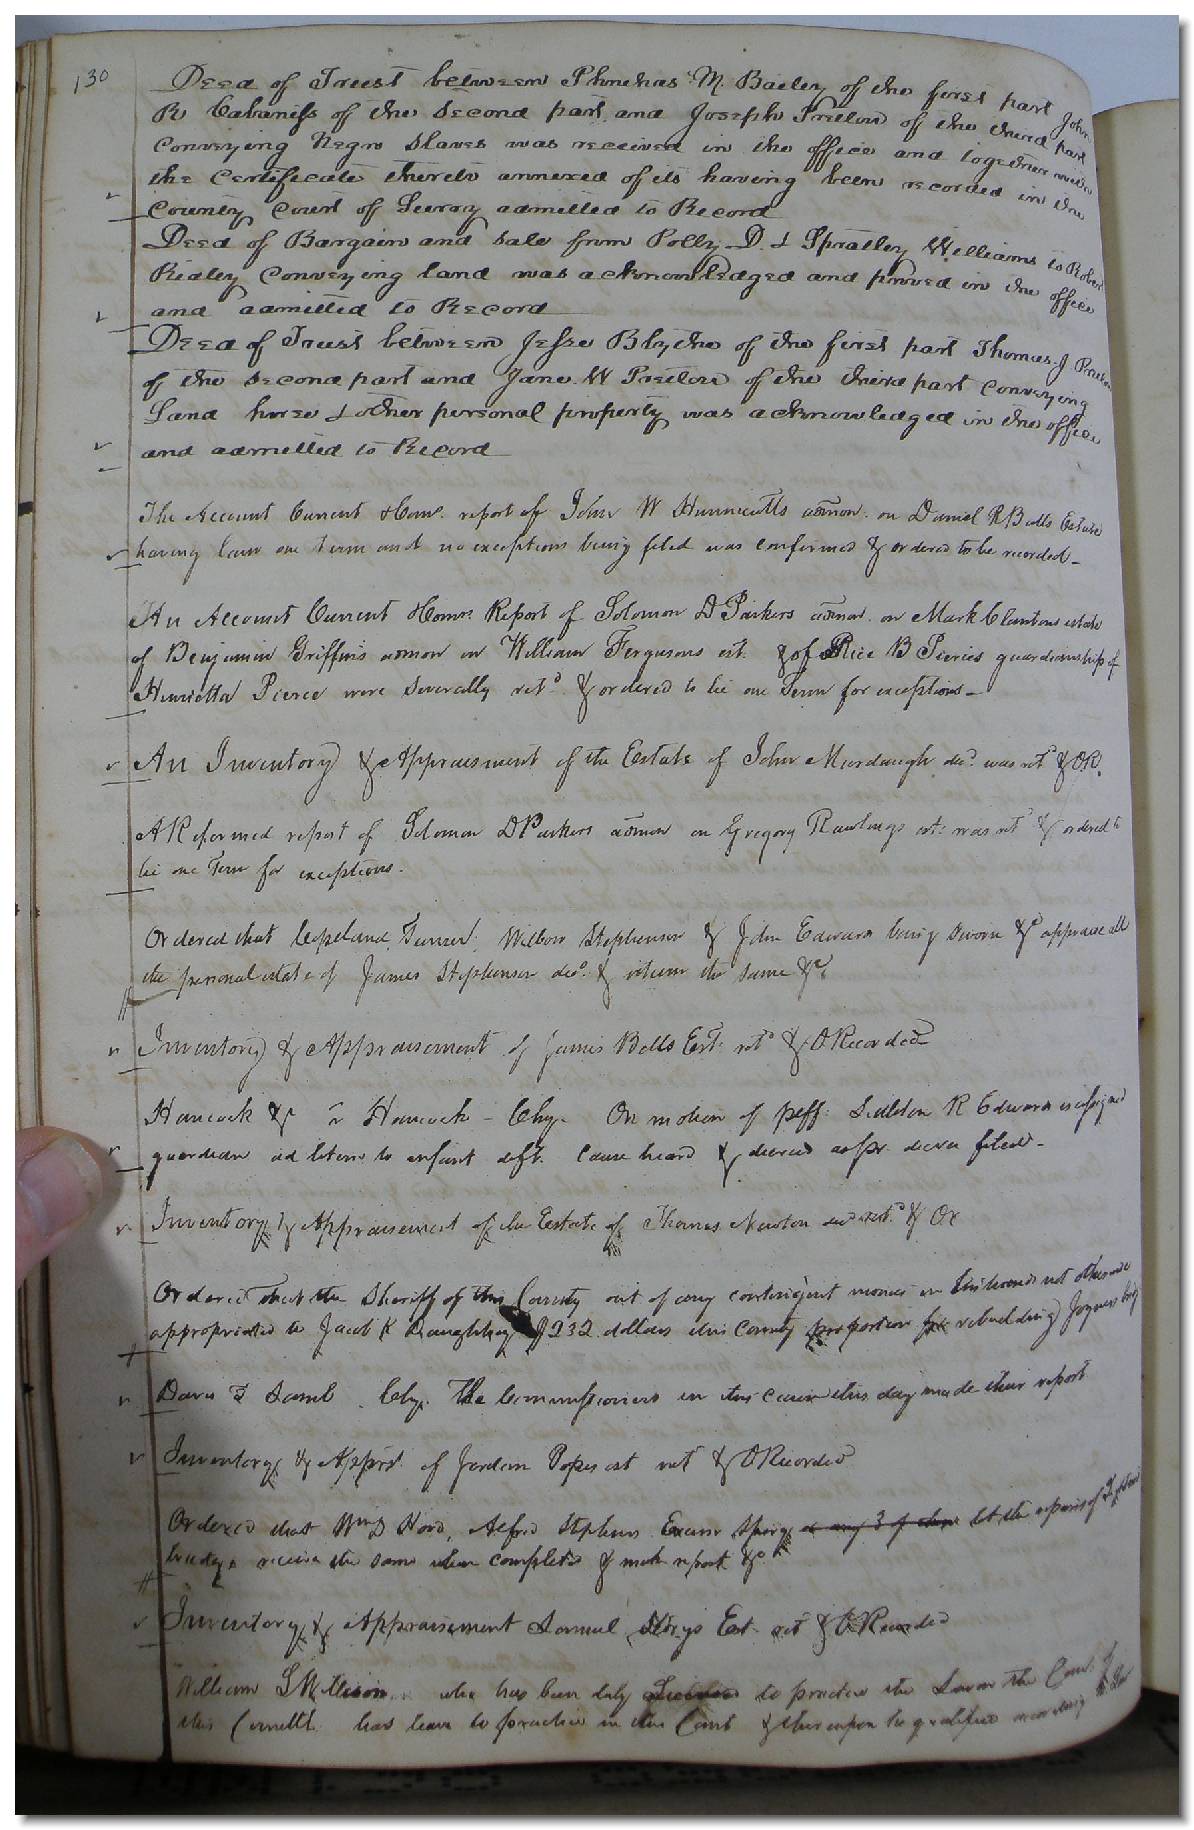 130
Deed of Trust between Phinehas M. Bailey of the first part John
R Cabaniss of the second part and Joseph Prellow of the third part
Conveying Negro Slaves was received in the office and together with
the Certificate thereto annexed of its having been recorded in the
County Court of Surry admitted to Record
Deed of Bargain and Sale from Polly D. & Spratley Williams to Robert
Ridley Conveying land was acknowledged and proved in the office
and admitted to Record
Deed of Trust between Jesse Blythe of the first part Thomas J
of the second part and Jane W of the third part conveying
Land horse & other personal property was acknowledged in the office
and admitted to Record
The Account Current & Coms. report of John W Hunnicutts admon. on Daniel R Bells Estate
having lain one Term and no exceptions being filed was confirmed & ordered to be recorded
An Account Current & Coms. Report of Solomon D Parkers admon. on Mark Clantons estate
of Benjamin Griffins admon on William Fergusons est. & of Rice B Pierces guardianship of
Henrietta Pierce were severally retd. & ordered to lie one Term for exceptions
An Inventory & Appraisment of the Estate of John Murdaugh decd. was retd & OR.
A Reformed report of Solomon D Parkers admon on Gregory Rawlings est. was retd & ordered to
lie one Term for exceptions.
Ordered that Copeland, Turner, Wilson Stephenson & John Edwards being sworn &c appraise all
the personal estate of James Stephenson decd. & return the same &c
Inventory & Appraisement of James Bells Est: retd & O Recorded
Hancock &c v Hancock - Chy. On motion of plff: R Edwards is assigned
guardian ad litem to infant deft. Cause heard & decreed as pr. decree filed
Inventory & Appraisement of the Estate of Thomas Newton decd retd. & Or
Ordered that the Sheriff of this County out of any contingent monies in his hands not otherwise
appropriated to Jacob K Daughtrey $232 dollars this County proportion for rebuilding Joyners bridge
Davis v Lamb Chy. The Commissioners in this cause this day made their report
Inventory & Apprst. of Jordan Popes est retd & O Recorded
Ordered that Wm D Hood, Alfred Stephens or any 3 of them let the repairs of
bridge receive the same when completed & make report &c
Inventory & Appraisement Samuel Est. retd & O Recorded
William who has been duly licensed to practice the Law in the Courts of
this Comwlth. has leave to practice in this Court & thereupon he qualified according to Law